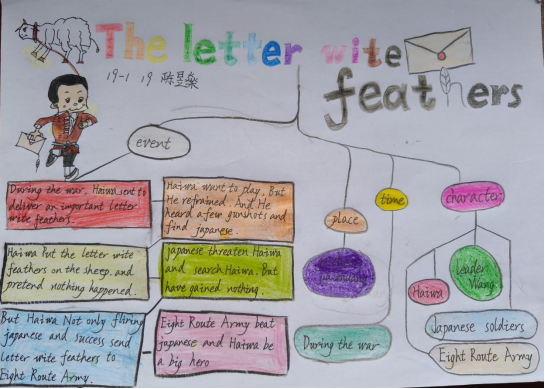 The letter wite
feathers
19-1 19 陈昱燊
event
During the war, Haiwa sent to
deliver an important letter
write feathers.
Haiwa want to play, But
He refrained. And He
heard a few gunshots and
find japanese.
Haiwa Put the letter write
feathers on the sheep. and
pretend nothing happened.
japanese threaten Haiwa
and search Haiwa. But
have gained nothing.
But Haiwa Not only
japanese and success send
letter write feathers to
Eight Route Army.
Eight Route Army beat
japanese and Haiwa be
a big hero
place
time
During the war
character
Haiwa
Leader
Wang
Japanese soldiers
Eight Route Army